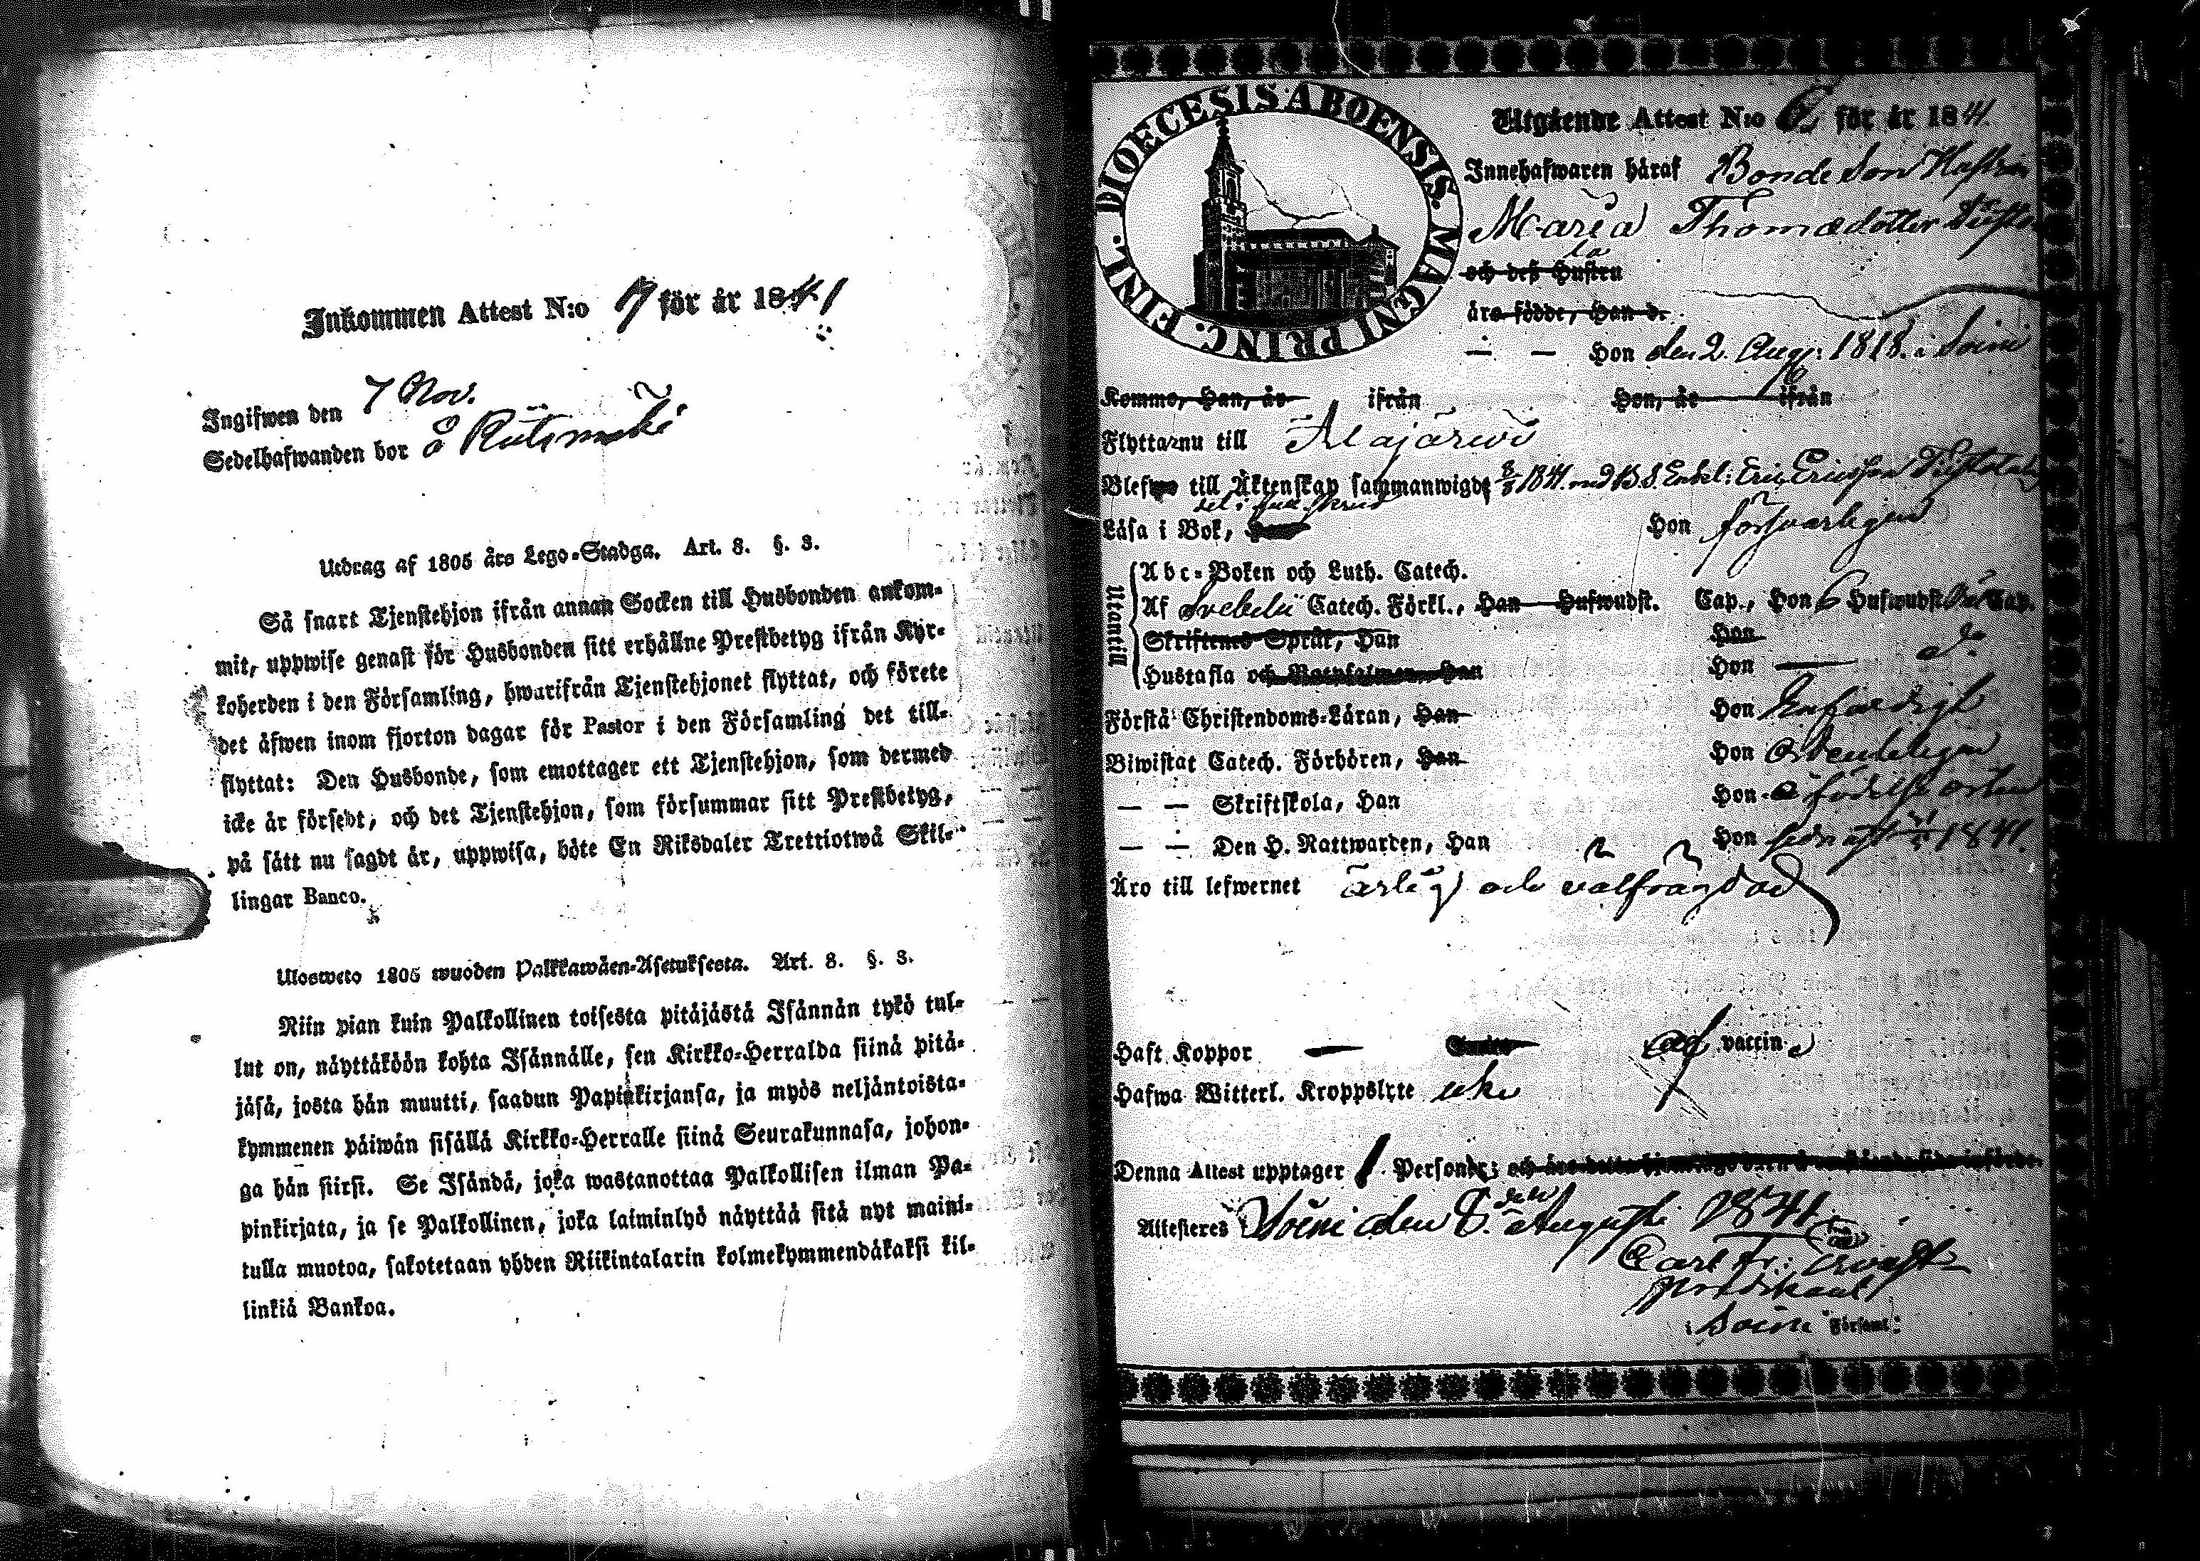 Inkommen Attest N:o 17 för år 1841
Ingifwen den 7 Nov.
Sedelhafwanden bor å
Utdrag af 1805 års Lego-Stadga. Art. 8. §. 3.
Så snart Tjenstehjon ifrån annan Socken till Husbonden ankom-
mit, uppwise genast för Husbonden sitt erhållne Prestbetyg ifrån Kyr-
koherden i den Församling, hwarifrån Tjenstehjonet flyttat, och förete
det äfwen inom fjorton dagar för Pastor i den Församling det till-
flyttat: Den Husbonde, som emottager ett Tjenstehjon, som dermed
icke är försedt, och det Tjenstehjon, som försummar sitt Prestbetyg,
på sätt nu sagdt är, uppwisa, böte En Riksdaler Trettiotwå Skil-
lingar Banco.
Ulosweto 1805 wuoden Palkkawäen-Asetuksesta. Art. 8. §. 3.
Niin pian kuin Palkollinen toisesta pitäjästä Isännän tykö tul-
lut on, näyttäköön kohta Isännälle, sen Kirkko-Herralda siinä pitä-
jäsä, josta hän muutti, saadun Papinkirjansa, ja myös neljäntoista-
kymmenen päiwän sisällä Kirkko-Herralle siinä Seurakunnasa, johon-
ga hän siirsi. Se Isändä, joka wastanottaa Palkollisen ilman Pa-
pinkirjata, ja se Palkollinen, joka laiminlyö näyttää sitä nyt maini-
tulla muotoa, sakotetaan yhden Riikintalarin kolmekymmendäkaksi kil-
linkiä Bankoa.
DIOECESIS ABOENSIS. MAGNI PRINC. FINL.
Utgående Attest N:o 6 för år 1841.
Innehafwaren häraf Bonde Son Hustrun
Maria Thomædotter
och deß Hustru
äro födde, Han d.
— — Hon den 2. Aug: 1818. i Soini
Kommo, Han, år ifrån Hon, år ifrån
Flyttar nu till Alajärwi
Blefwo till Äktenskap sammanwigde 1841. Eric Ericsson
Läsa i Bok, Hon försvarligen
Utantill
Abc-Boken och Luth. Catech.
Af Svebelii Catech. Förkl., Han Hufwudst. Cap., Hon 6 Hufwudst. Cap.
Skriftenes Språk, Han Hon
Hustafla och Botpsalmen, Han Hon — d:o
Förstå Christendoms-Läran, Han Hon Enfaldigt
Biwistat Catech. Förhören, Han Hon ordenteligen
— — Skriftskola, Han Hon i födelse orten
— — Den H. Nattwarden, Han Hon 1841.
Äro till lefwernet ärlig och välfrägdad
Haft Koppor — vaccin
Hafwa Witterl. Kroppslyte icke
Denna Attest upptager 1. Personer;
Attesteres Soini den 8. Augusti 1841.
Carl Fr:
Soini Församl: